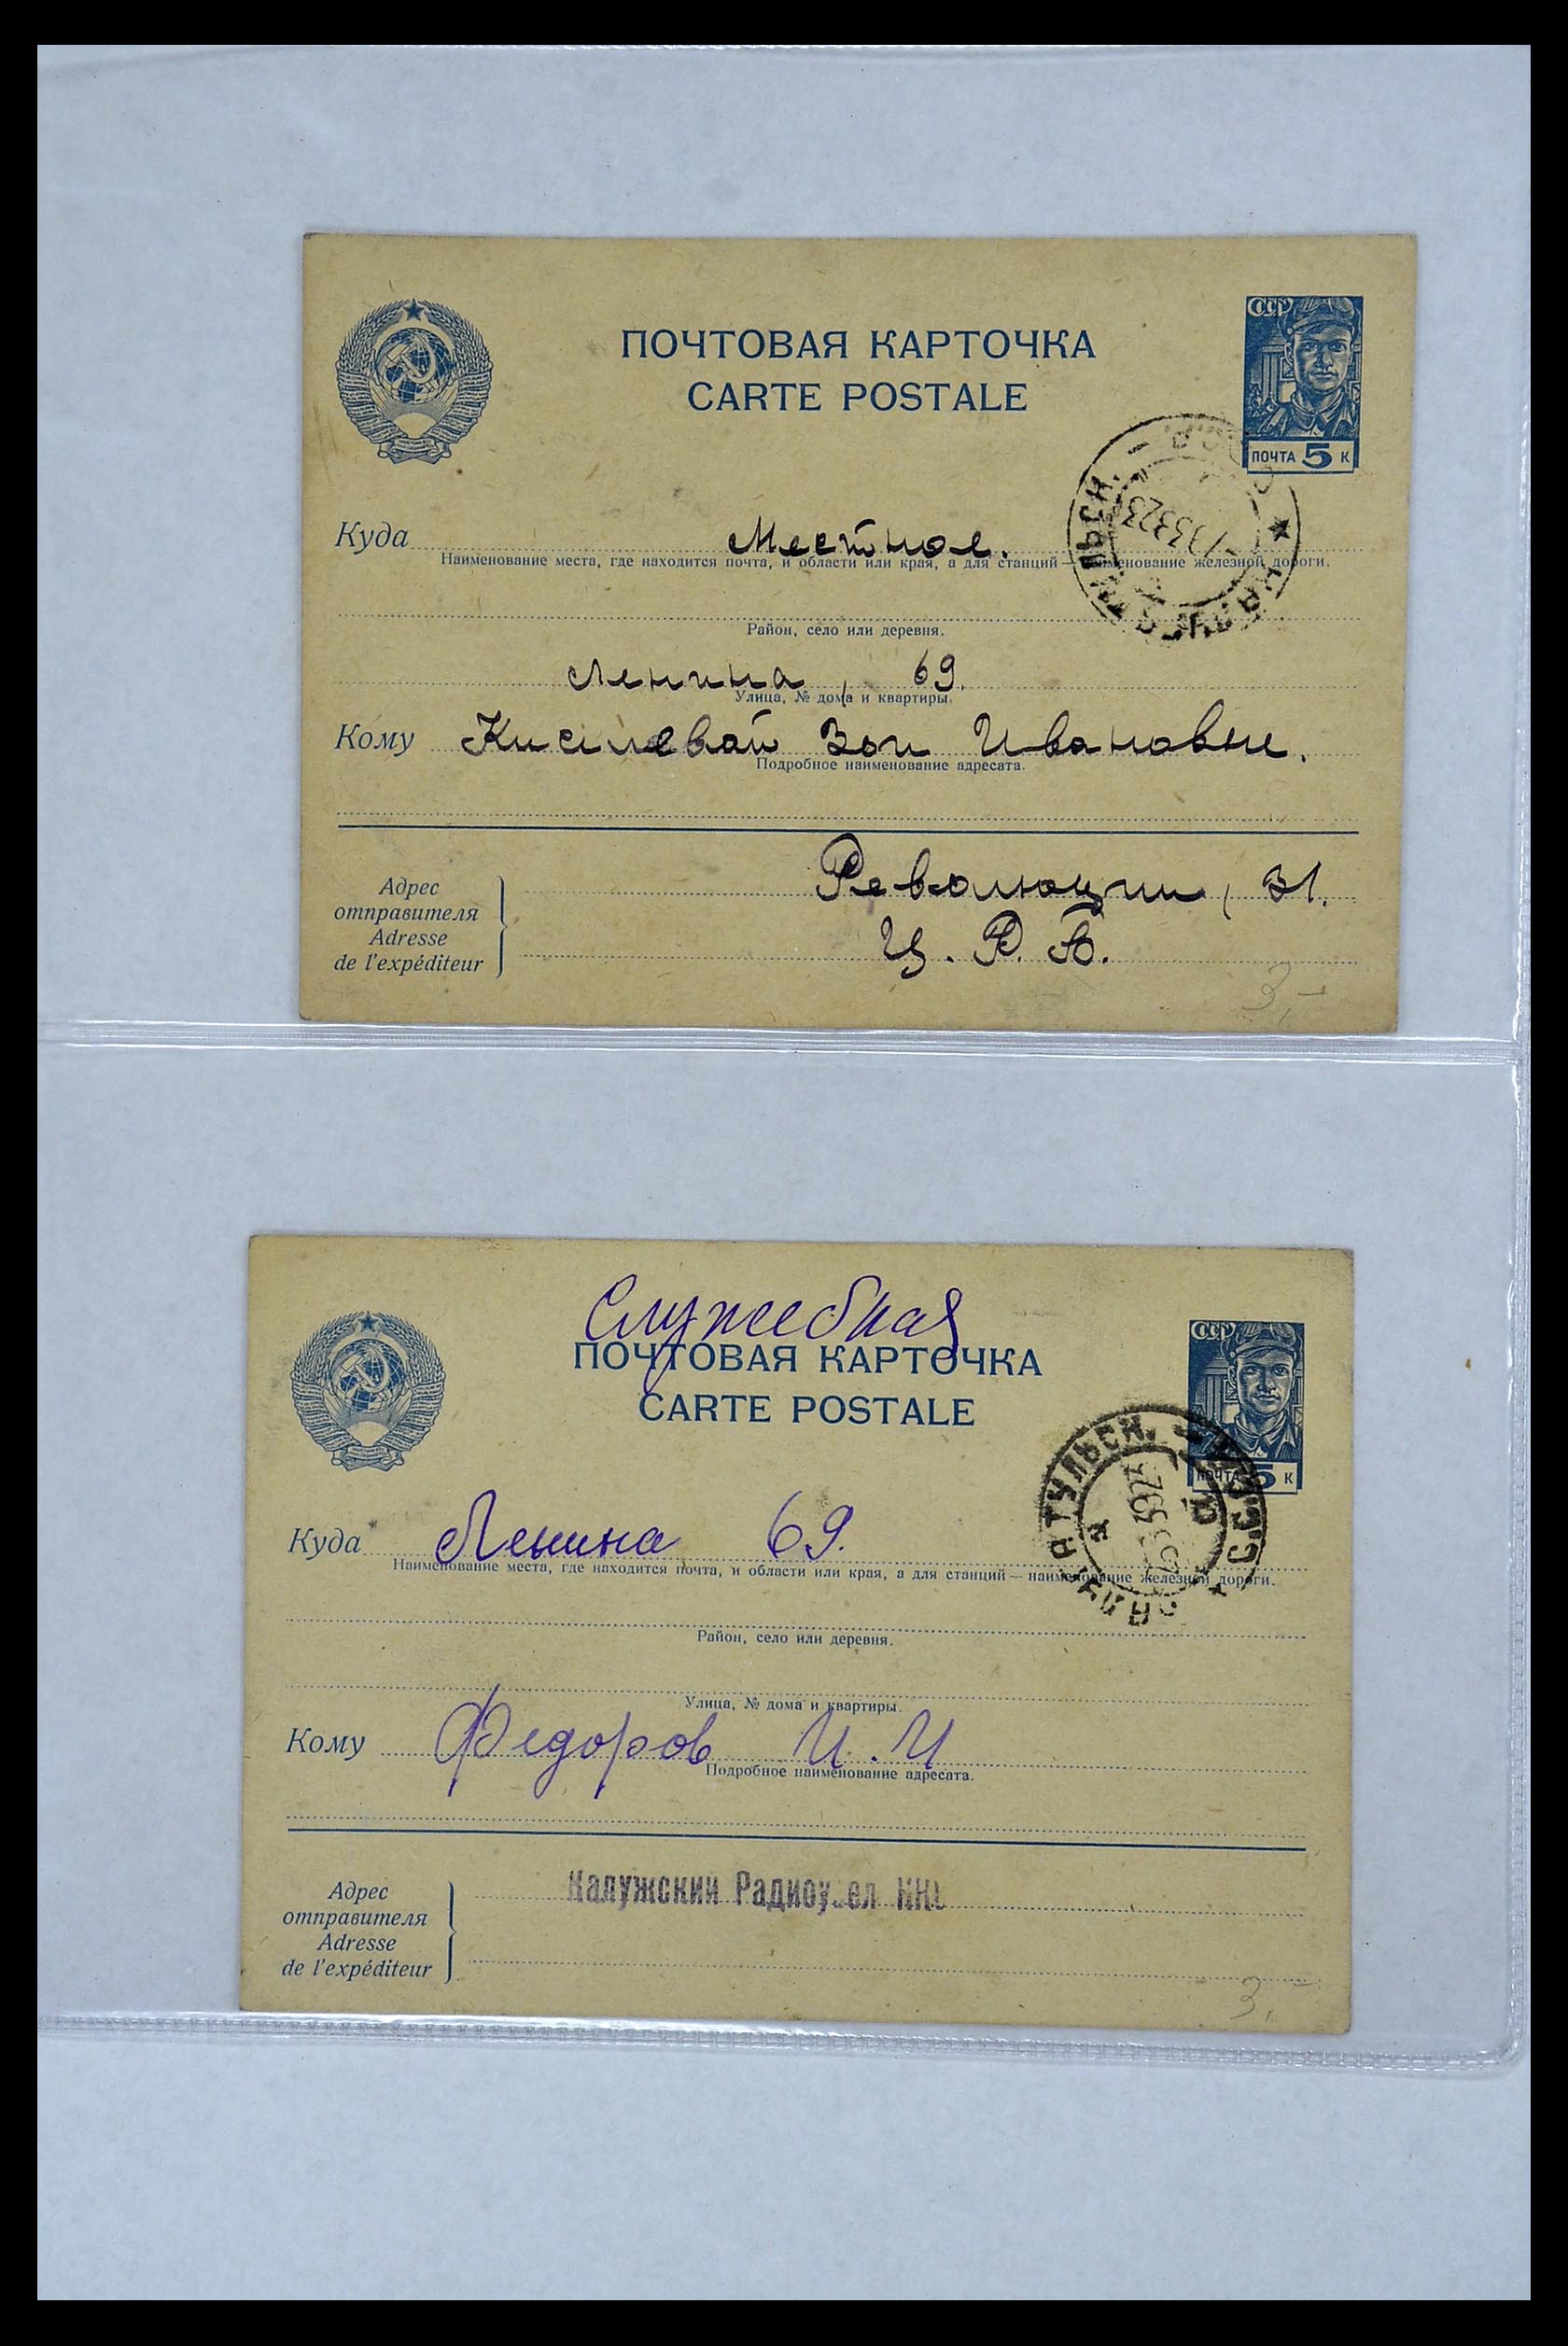 СССР
ПОЧТОВАЯ КАРТОЧКА
CARTE POSTALE
ПОЧТА 5 К
Куда Местное.
Наименование места, где находится почта, и области или края, а для станций — наименование железной дороги.
Район, село или деревня.
Ленина, 69.
Улица, № дома и квартиры.
Кому Киселевой Зои Ивановне.
Подробное наименование адресата.
Адрес
отправителя
Adresse
de l'expéditeur
Революции, 31.
Ц. Р. Б.
3,-
Служебная
СССР
ПОЧТОВАЯ КАРТОЧКА
CARTE POSTALE
ПОЧТА 5 К
ТУЛЬСК.
Куда Ленина 69.
Наименование места, где находится почта, и области или края, а для станций — наименование железной дороги.
Район, село или деревня.
Улица, № дома и квартиры.
Кому Федоров И.И
Подробное наименование адресата.
Калужский Радиоузел
Адрес
отправителя
Adresse
de l'expéditeur
3,-